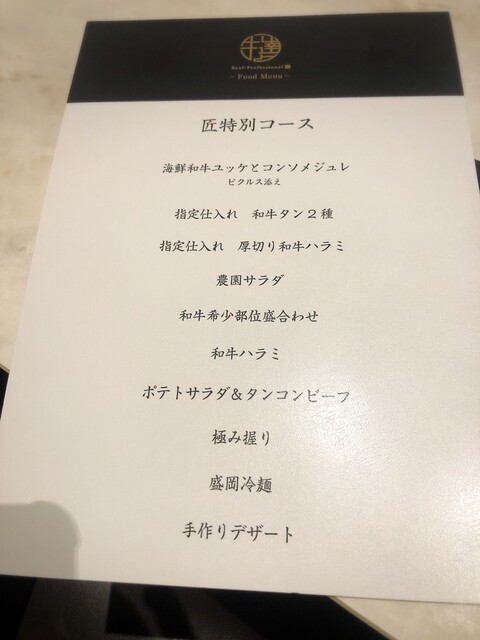 Beef-Professional
~Food Menu~
匠特別コース
海鮮和牛ユッケとコンソメジュレ
ピクルス添え
指定仕入れ　和牛タン２種
指定仕入れ　厚切り和牛ハラミ
農園サラダ
和牛希少部位盛合わせ
和牛ハラミ
ポテトサラダ＆タンコンビーフ
極み握り
盛岡冷麺
手作りデザート